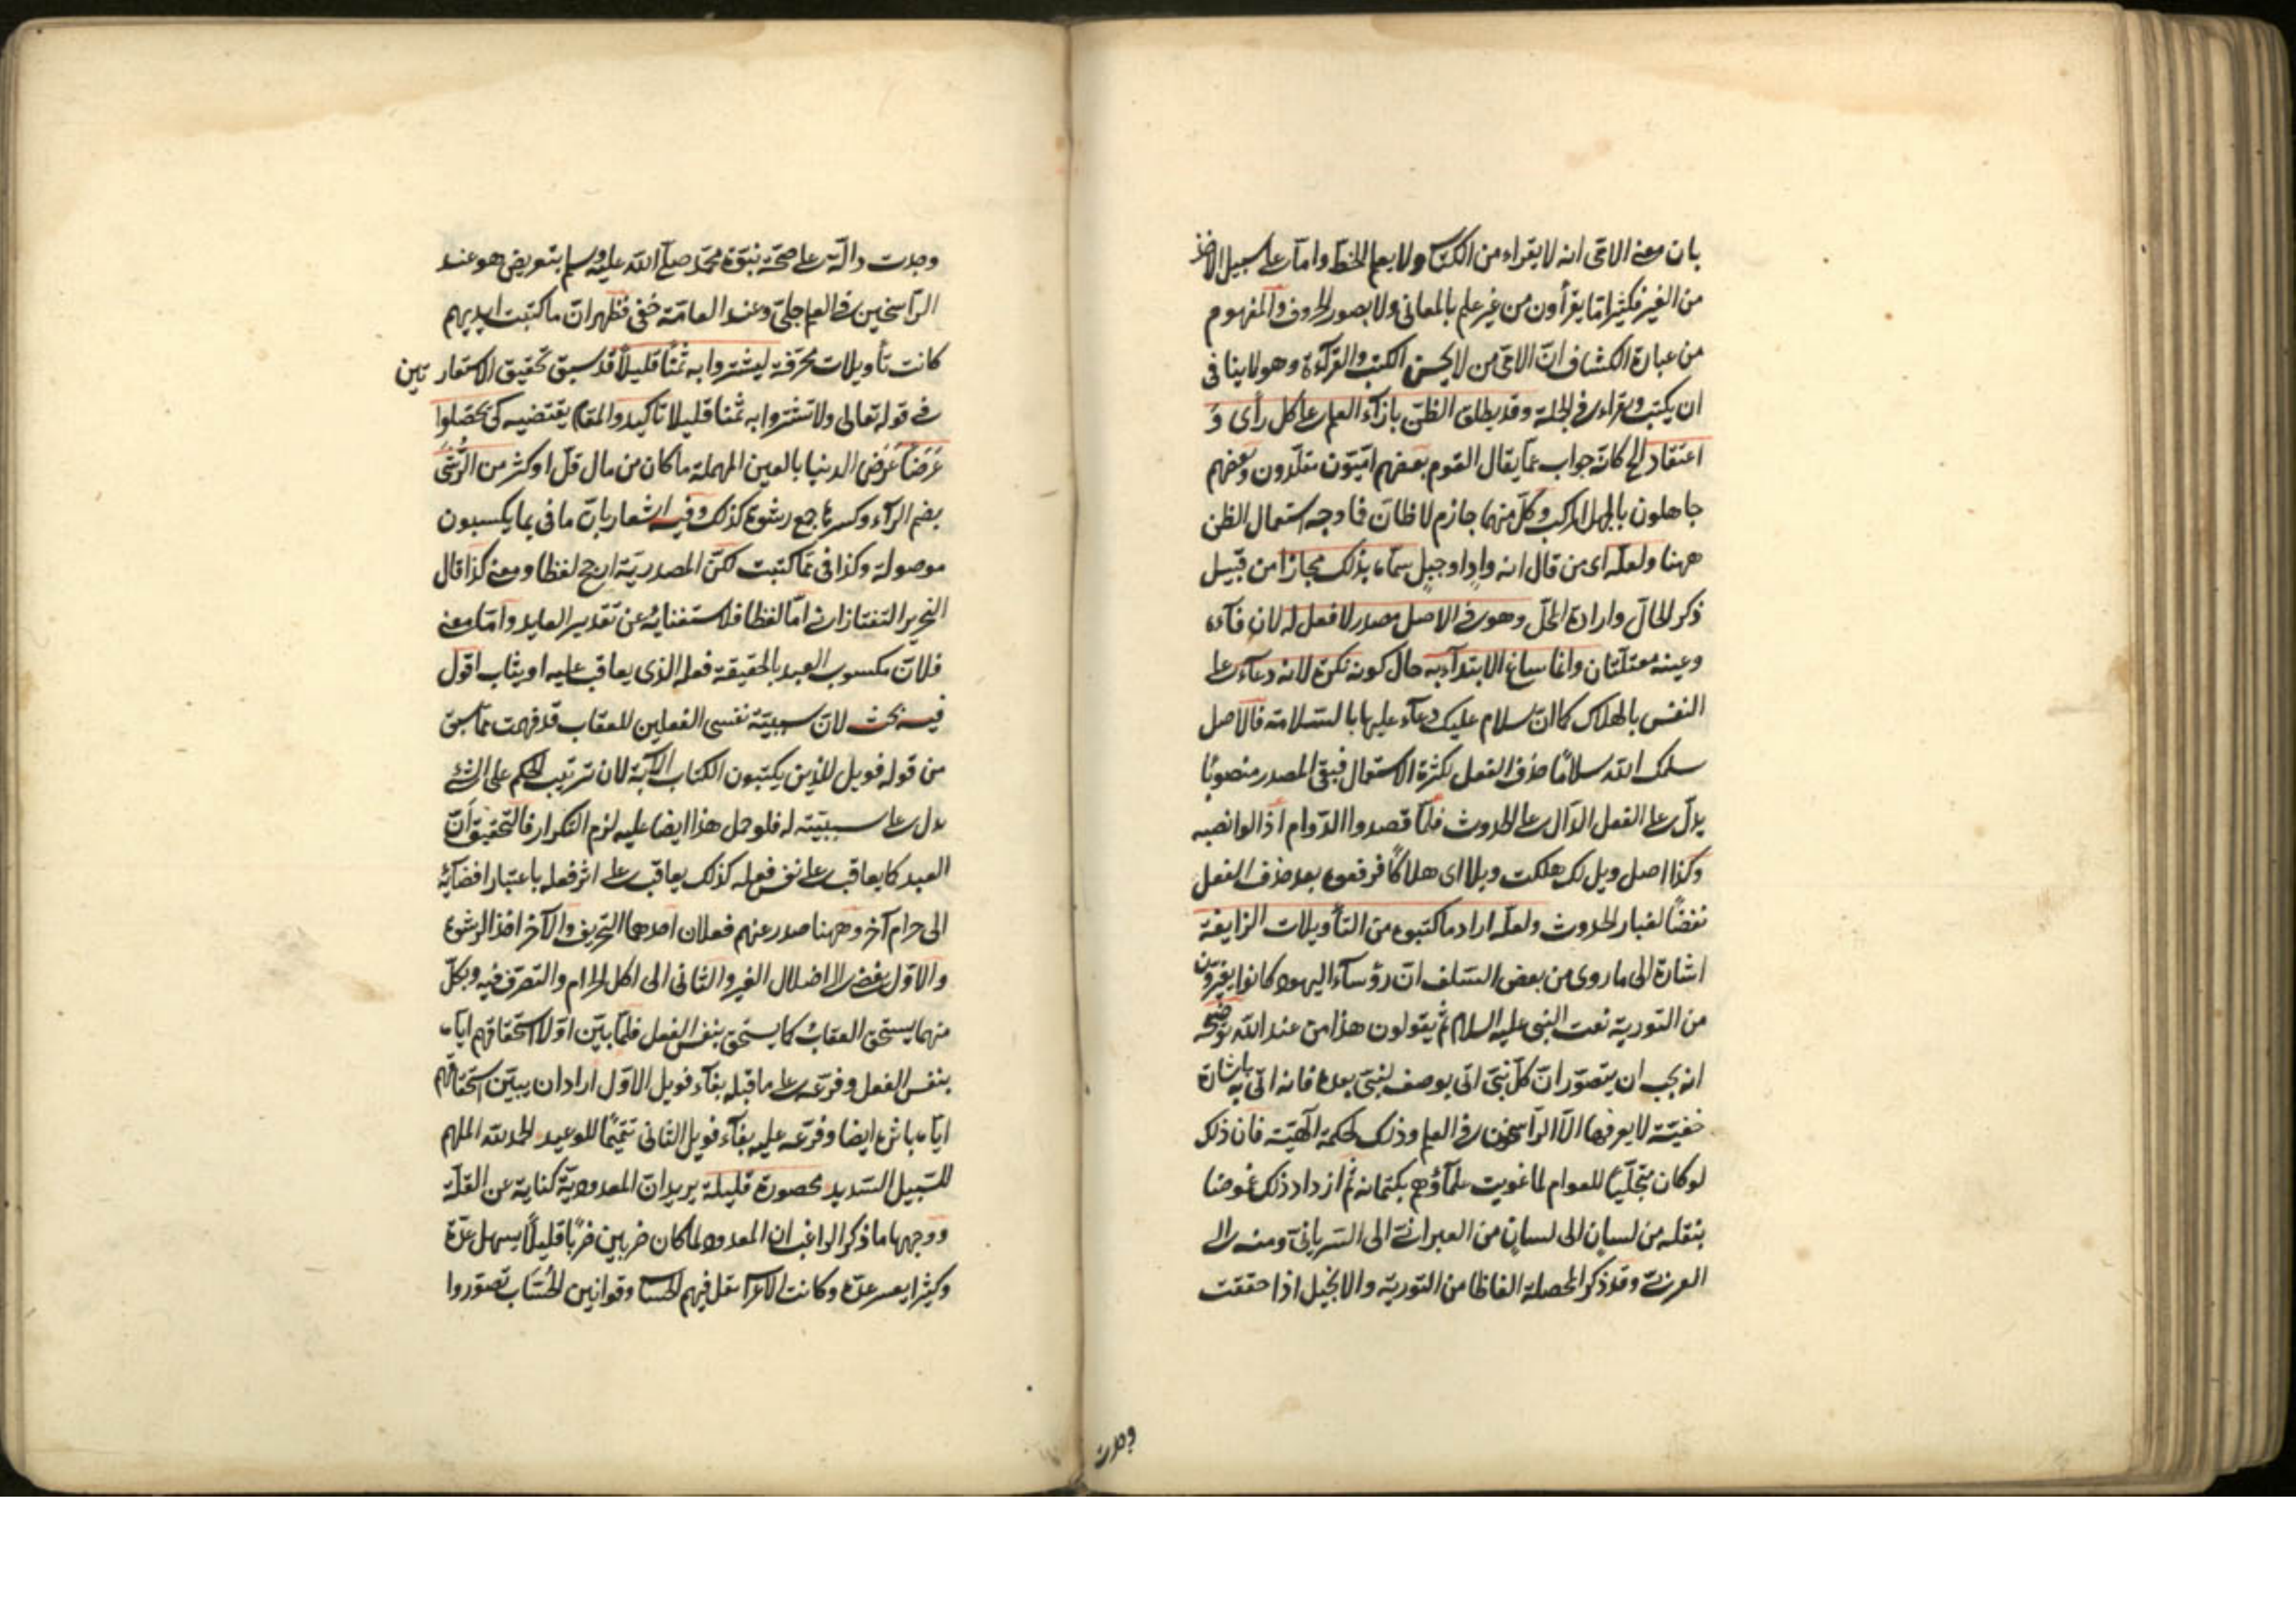 بان معنى الامى انه لا يقراء من الكتاب ولا يعلم الخط واما على سبيل الاخذ
من الغير فكثيرا ما يقرأون من غير علم بالمعانى ولا بصور الحروف والمفهوم
من عبارة الكشاف انّ الامى من لا يحسن الكتب والقرآءة وهو لا ينافى
ان يكتب ويقراء فى الجملة وقد يطلق الظنّ بازآء العلم على كل رأى و
اعتقاد الخ كانّه جواب عما يقال القوم بعضهم امّيّون مقلّدون وبعضهم
جاهلون بالجهل المركب وكلّ منهما جازم لا ظانّ فما وجه استعمال الظن
ههنا ولعلّه اى من قال انه وادٍ او جبل سمّاه بذلك مجازا من قبيل
ذكر الحالّ وارادة المحلّ وهو فى الاصل مصدر لا فعل له لان فآءه
وعينه معتلّتان وانما ساغ الابتدآء به حال كونه نكرة لانه دعآء على
النفس بالهلاك كما انّ سلام عليك دعآء عليها بالسّلامة فالاصل
سلمك الله سلامًا حذف الفعل لكثرة الاستعمال فبقى المصدر منصوبًا
يدلّ على الفعل الدّال على الحدوث فلمّا قصدوا الدّوام ازالوا نصبه
وكذا اصل ويل لك هلكت ويلا اى هلاكًا فرفعوه بعد حذف الفعل
نفضًا لغبار الحدوث ولعلّه اراد ما كتبوه من التأويلات الزايغة
اشارة الى ما روى من بعض السّلف انّ رؤسآء اليهود كانوا يغيرون
من التورية نعت النبى عليه السلام ثم يقولون هذا من عند الله توضيحه
انه يجب ان يتصوّر انّ كلّ نبىّ اتى بوصف لنبىّ بعده فانه اتى به باشارة
خفيّة لا يعرفها الّا الرّاسخون فى العلم وذلك لحكمة الٓهيّة فان ذلك
لو كان متجلّيًا للعوام لما غويت علمآؤهم بكتمانه ثم ازداد ذلك غموضا
بنقله من لسان الى لسان من العبرانىّ الى السّريانىّ ومنه الى
العربىّ وقد ذكر المحصلة الفاظا من التورية والانجيل اذا حققت
وجدت
وجدت دالّة على صحّة نبوّة محمّد صلّى الله عليه وسلم بتعريض هو عند
الرّاسخين فى العلم جلىّ وعند العامّة خفى فظهر انّ ما كتبت ايديهم
كانت تأويلات محرّفة ليشتروا به ثمنًا قليلًا قد سبق تحقيق الاستعارتين
فى قوله تعالى ولا تشتروا به ثمنا قليلا تاكيد والمقام يقتضيه كى يحصّلوا
عَرَضًا عَرَض الدنيا بالعين المهملة ما كان من مال قلّ او كثر من الرُّشَى
بضم الرآء وكسرها جمع رشوة كذلك وفيه اشعار بان ما فى مما يكسبون
موصولة وكذا فى ممّا كتبت لكنّ المصدريّة ارجح لفظا ومعنى كذا قال
النحرير التفتازانى امّا لفظا فلاستغنايه عن تقدير العايد وامّا معنى
فلانّ مكسوب العبد بالحقيقة فعله الذى يعاقب عليه او يثاب اقول
فيه بحث لانّ سببيّة نفسى الفعلين للعقاب قد فهمت ممّا سبق
من قوله فويل للذين يكتبون الكتاب الآية لان ترتيب الحكم على الشئ
يدل على سببيّته له فلو حمل هذا ايضا عليه لزم التكرار فالتحقيق أنّ
العبد كما يعاقب على نفس فعله كذلك يعاقب على اثر فعله باعتبار افضآئه
الى حرام آخر وههنا صدر عنهم فعلان احدهما التحريف والآخر اخذ الرشوة
والاوّل يفضى الى اضلال الغير والثانى الى اكل الحرام والتصرّف فيه وبكلّ
منهما يستحق العقاب كما يستحق بنفس الفعل فلمّا بيّن اوّلا استحقاقهم ايّاه
بنفس الفعل وفرّعه على ما قبله بفآء فويل الاوّل اراد ان يبيّن استحقاقهم
ايّاه باثره ايضا وفرّعه عليه بفآء فويل الثانى تتميمًا للوعيد الحمد لله الملهم
للسّبيل السّديد محصورة قليلة يريد انّ المعدوديّة كناية عن القلّة
ووجهها ما ذكر الراغب ان المعدود لما كان ضربين ضربًا قليلًا يسهل عدّه
وكثيرا يعسر عدّه وكانت الاعراب تقل فيهم الحساب وقوانين الحُسّاب تصوّروا